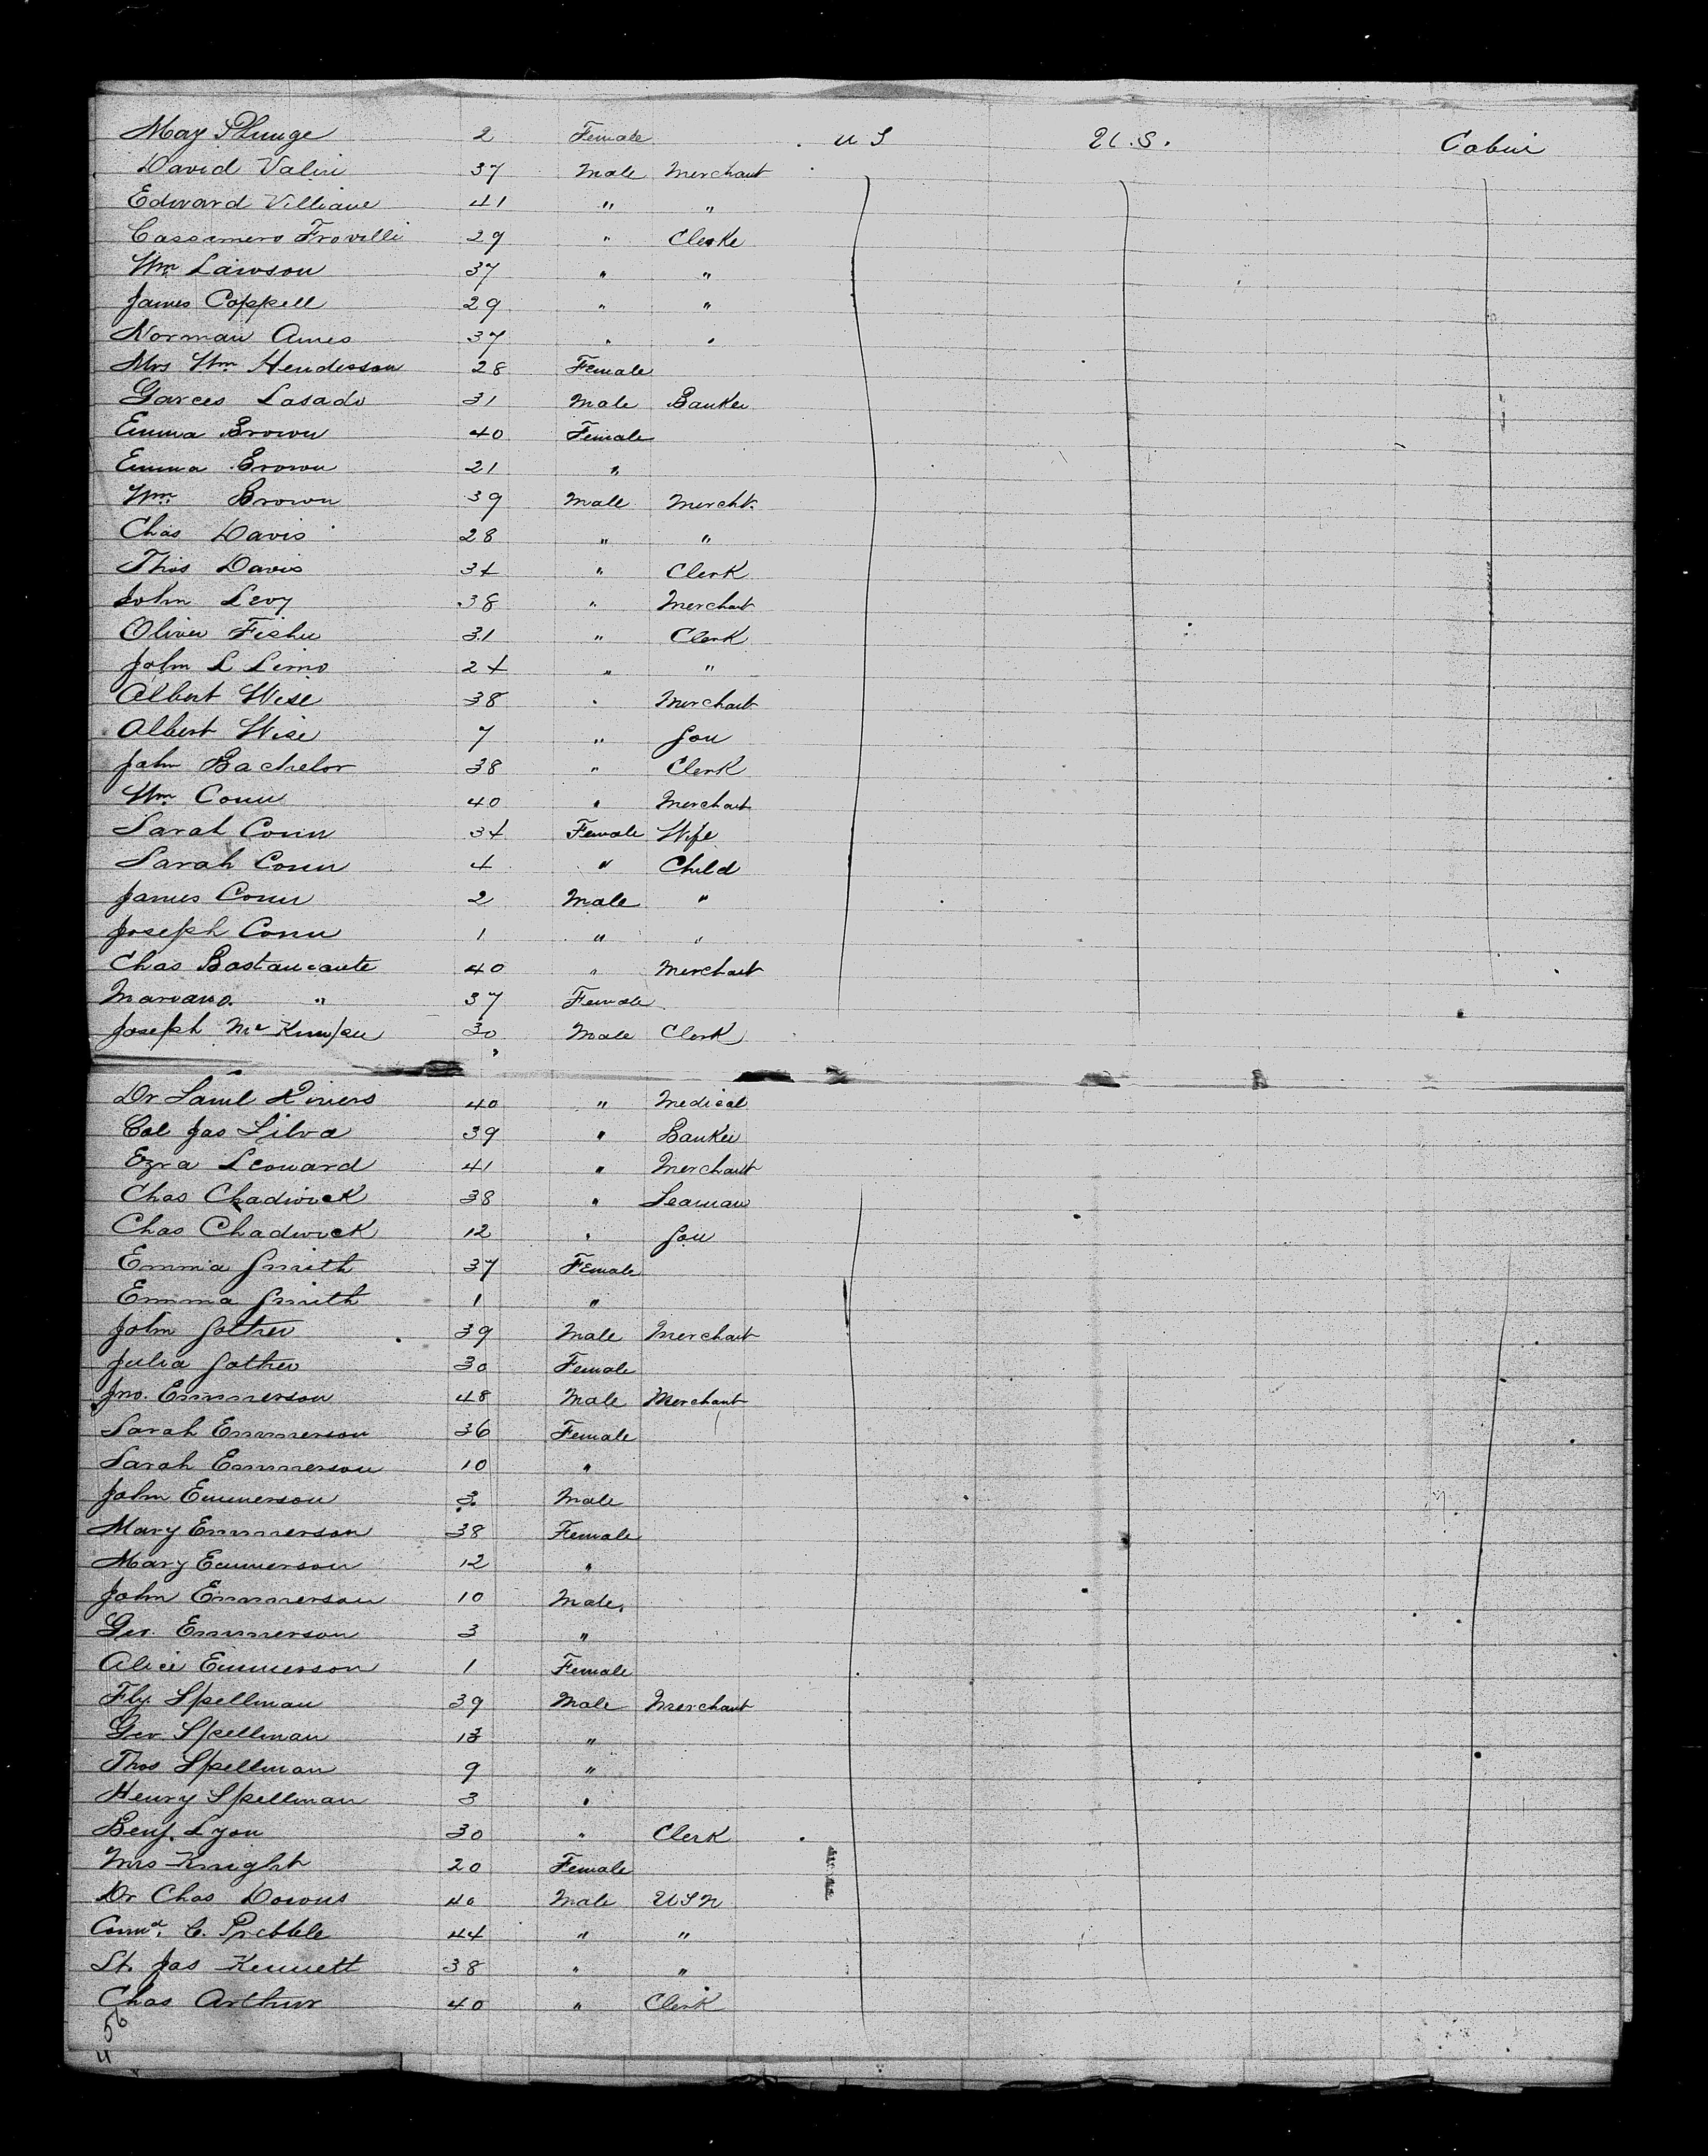 May Plunge 2 Female U S U.S. Cabin
David Valin 37 Male Merchant
Edward Villiane 41 " "
Cassemero Frovelli 29 " Clerke
Wm Lawson 37 " "
James Coppell 29 " "
Norman Ames 37 " "
Mrs Wm Henderson 28 Female
Garces Lasado 31 Male Banker
Emma Brown 40 Female
Emma Brown 21 "
Wm Brown 39 Male Mercht.
Chas Davis 28 " "
Thos Davis 34 " Clerk
John Levy 38 " Merchant
Oliver Fisher 31 " Clerk
John L 24 " "
Albert Wise 38 " Merchant
Albert Wise 7 " Son
John Bachelor 38 " Clerk
Wm Conn 40 " Merchant
Sarah Conn 34 Female Wife
Sarah Conn 4 " Child
James Conn 2 Male "
Joseph Conn 1 " "
Chas Bastancante 40 " Merchant
Mariano " 37 Female
Joseph 30 Male Clerk
Dr Saml 40 " Medical
Col Jas Silva 39 " Banker
Ezra Leonard 41 " Merchant
Chas Chadwick 38 " Seaman
Chas Chadwick 12 " Son
Emma Smith 37 Female
Emma Smith 1 "
John 39 Male Merchant
Julia 30 Female
Jno. Emmerson 48 Male Merchant
Sarah Emmerson 36 Female
Sarah Emmerson 10 "
John Emmerson 3 Male
Mary Emmerson 38 Female
Mary Emmerson 12 "
John Emmerson 10 Male
Geo. Emmerson 3 "
Alice Emmerson 1 Female
Spellman 39 Male Merchant
Geo Spellman 13 "
Thos Spellman 9 "
Henry Spellman 3 "
Benj. Lyon 30 " Clerk
Mrs Knight 20 Female
Dr Chas Downs 40 Male USN
Comd. C. Prebble 44 " "
Lt. Jas Kennett 38 " "
Chas Arthur 40 " Clerk
56